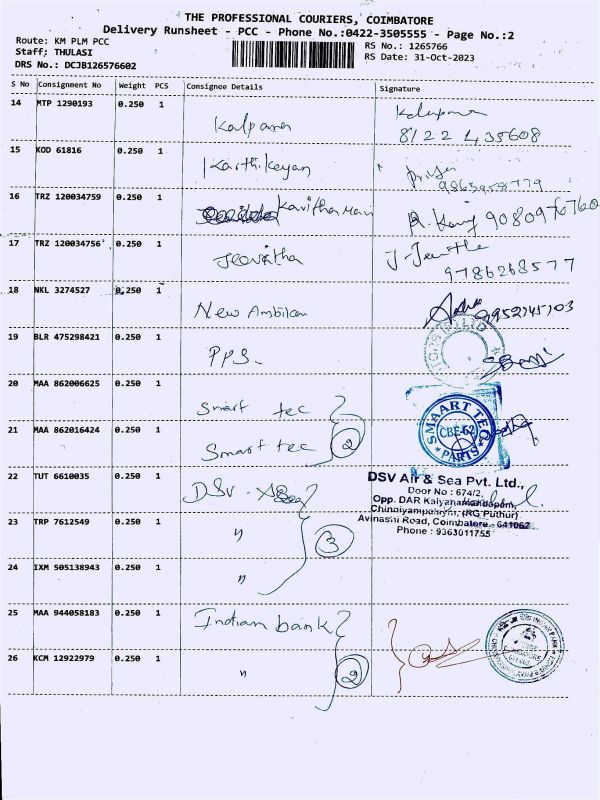 THE PROFESSIONAL COURIERS, COIMBATORE
Delivery Runsheet - PCC - Phone No.:0422-3505555 - Page No.:2
Route: KM PLM PCC
RS No.: 1265766
Staff; THULASI
RS Date: 31-Oct-2023
DRS No.: DCJB126576602
S No Consignment No Weight PCS Consignee Details Signature
14 MTP 1290193 0.250 1 Kalpana
8122 435608
15 KOD 61816 0.250 1 Karthikeyan
16 TRZ 120034759 0.250 1 Kavitha Mani
17 TRZ 120034756 0.250 1 Jeevitha
9786268577
18 NKL 3274527 0.250 1 New Ambikaa
19 BLR 475298421 0.250 1 PPS
20 MAA 862006625 0.250 1 Smart tec
21 MAA 862016424 0.250 1 Smart tec 2
SMAART TEC
CBE-62
PARTS
22 TUT 6610035 0.250 1 DSV
DSV Air & Sea Pvt. Ltd.,
Door No : 674/2,
Opp. DAR Kalyanamandapam,
Chinniyampalayam, (RG Puthur)
Avinashi Road, Coimbatore - 641062
Phone : 9363011755
23 TRP 7612549 0.250 1 " 3
24 IXM 505138943 0.250 1 "
25 MAA 944058183 0.250 1 Indian bank
26 KCM 12922979 0.250 1 " 2